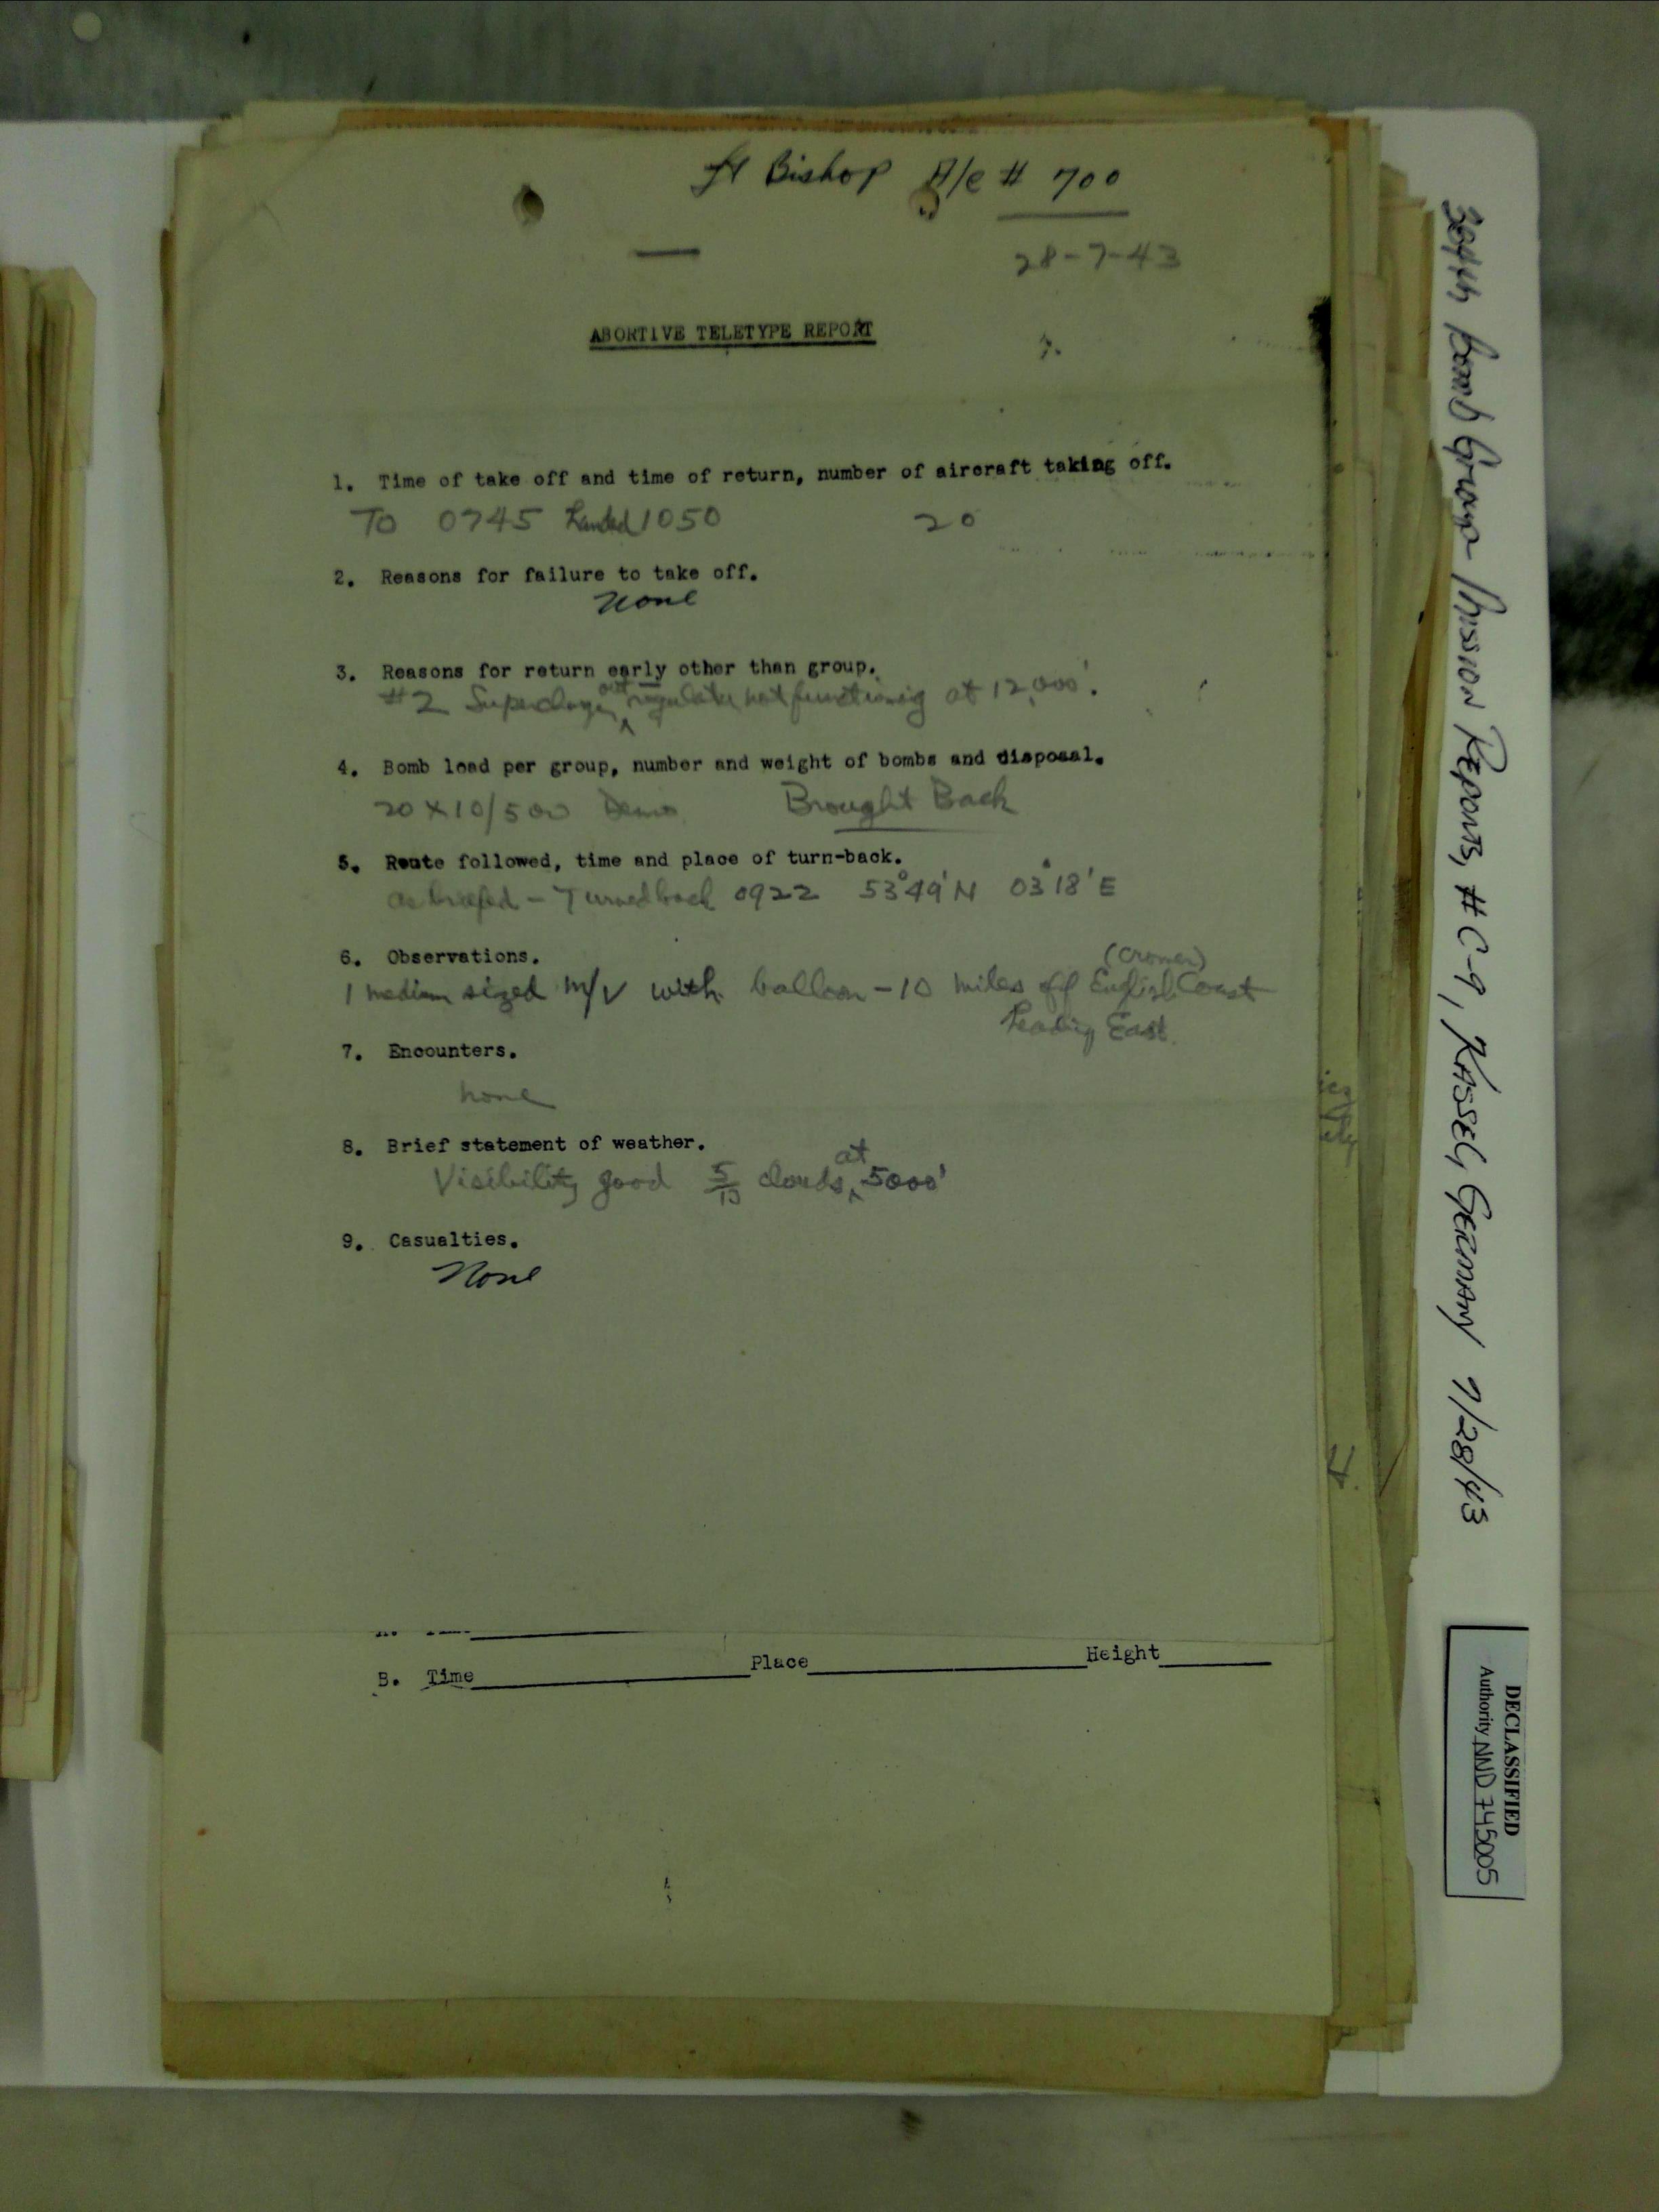 Lt Bishop A/C # 700
28-7-43
ABORTIVE TELETYPE REPORT
1. Time of take off and time of return, number of aircraft taking off.
TO 0745 Landed 1050 20
2. Reasons for failure to take off.
None
3. Reasons for return early other than group.
#2 Supercharger regulator not functioning at 12,000'.
4. Bomb load per group, number and weight of bombs and disposal.
20 X 10/500 Demo Brought Back
5. Route followed, time and place of turn-back.
as briefed - Turned back 0922 53°49'N 03°18'E
6. Observations.
(Cromer)
1 medium sized M/V with balloon - 10 miles off English Coast
heading East.
7. Encounters.
none
8. Brief statement of weather.
Visibility good 5/10 clouds at 5000'
9. Casualties.
None
B. Time Place Height
Bomb Group Mission Reports, #C-9, KASSEL, GERMANY 7/28/43
DECLASSIFIED
Authority NND 745005